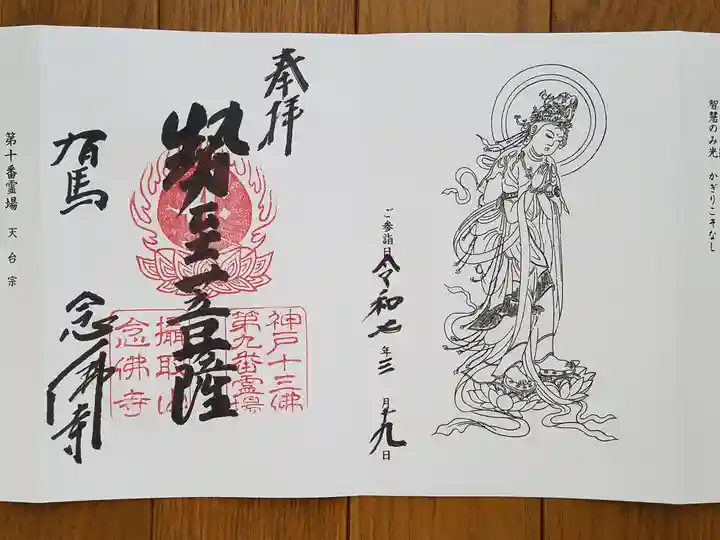 智慧のみ光　かぎりこそなし
ご参詣日 令和七年三月十九日
奉拝
勢至菩薩
神戸十三佛
第九番霊場
攝取山
念佛寺
有馬　念佛寺
第十番霊場　天台宗